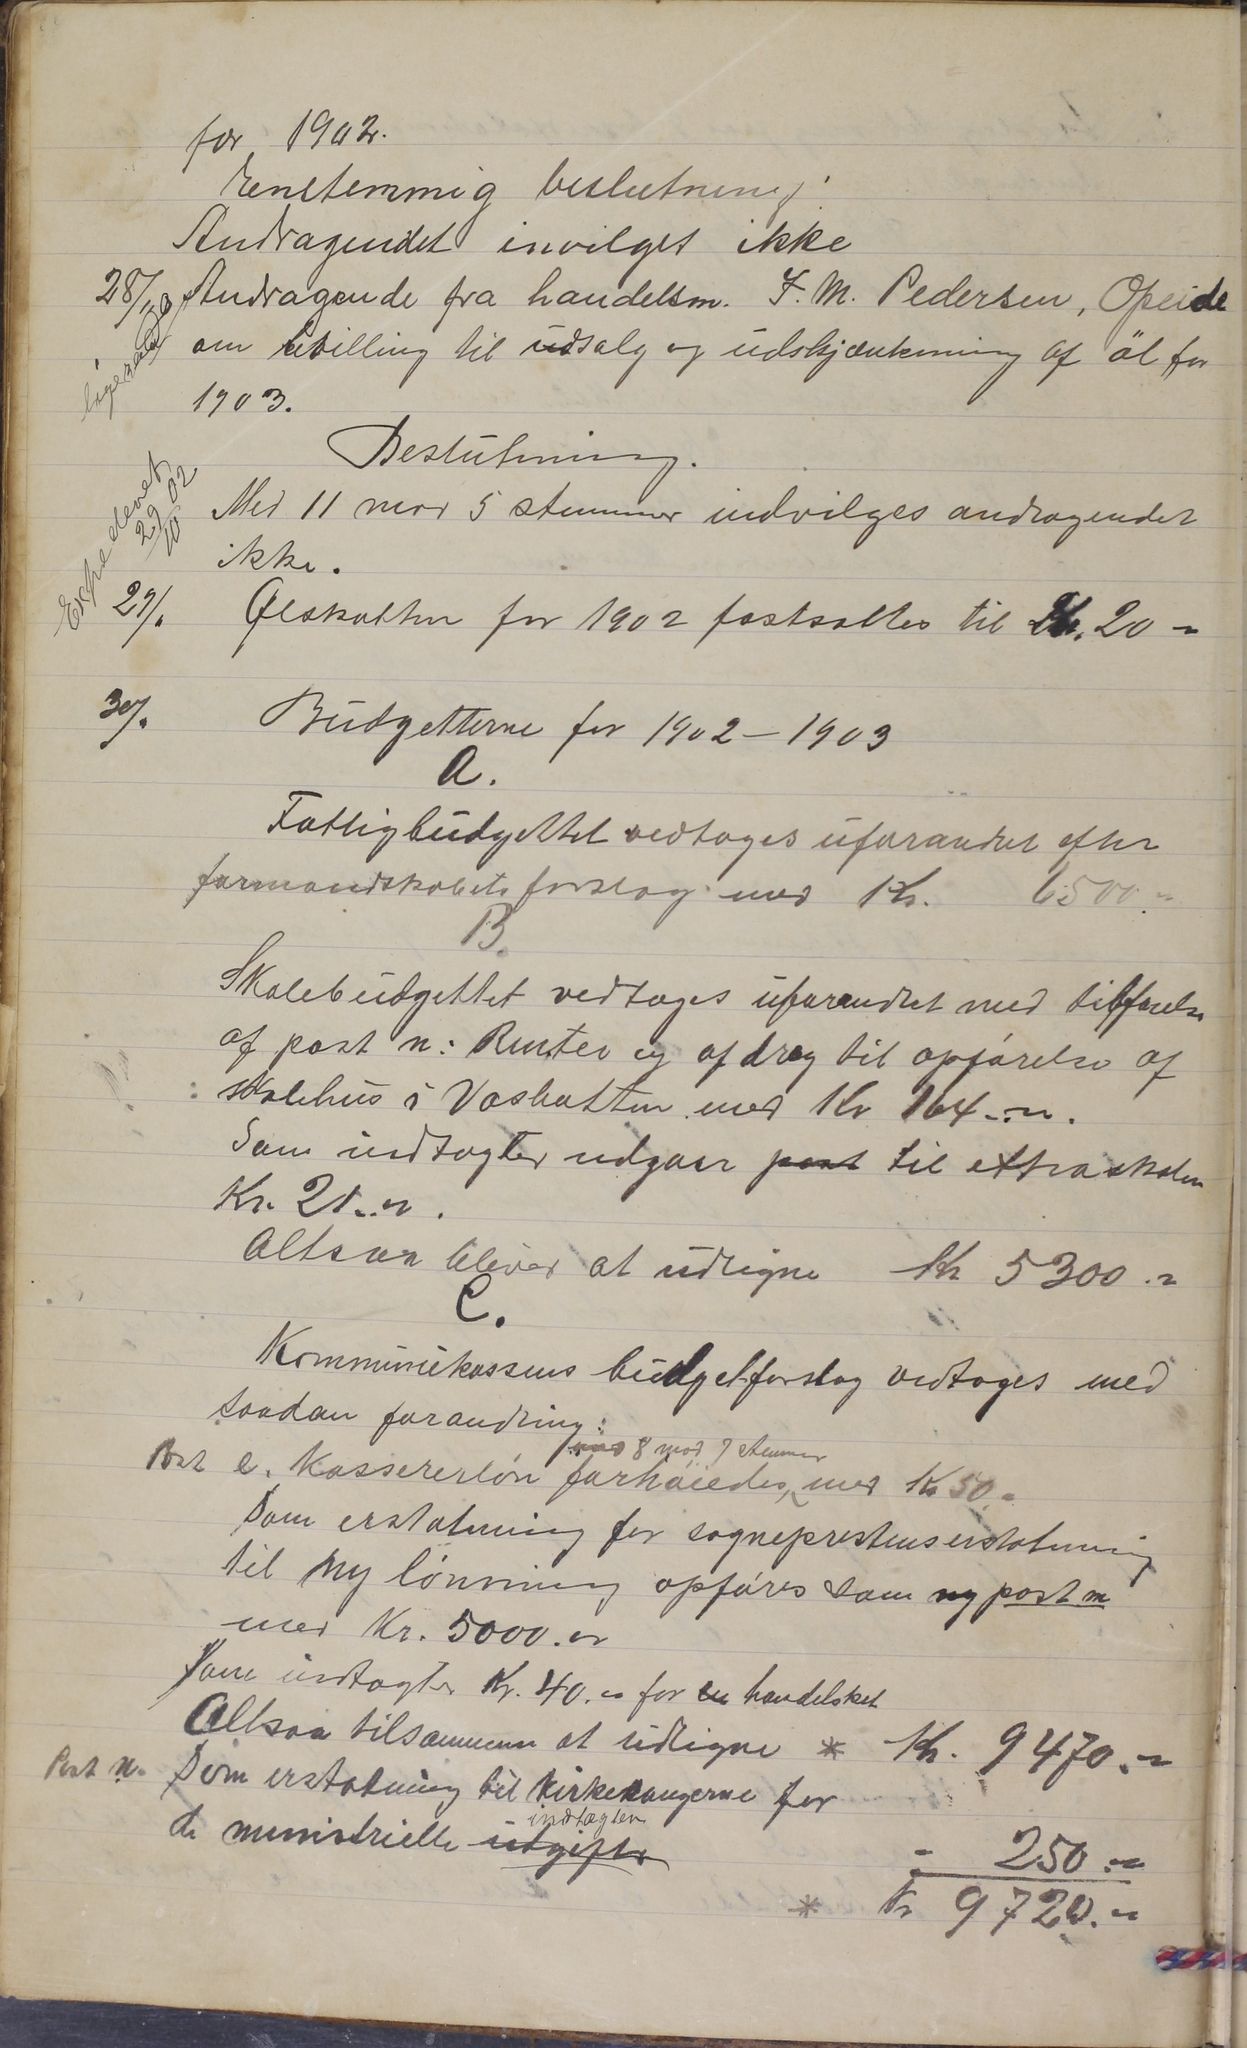 for 1902.
Enstemmig beslutning:
Andragendet invilget ikke
28/ Andragende fra handelsm. F. M. Pedersen, Opeide
om bevilling til udsalg og udskjænkning af öl for
1903.
Beslutning.
Expederet 29/10 02
Med 11 mod 5 stemmer indvilges andragendet
ikke.
29/. Ølskatten for 1902 fastsattes til Kr. 20 -
30/. Budgetterne for 1902-1903
A.
Fattigbudgettet vedtages uforandret efter
formandskabets forslag med Kr. 6500.-
B.
Skolebudgettet vedtages uforandret med tilførelse
af post n: Renter og afdrag til opførelse af
skolehus i Vasbatten med Kr 164.-.
Som indtægter udgaar post til extraskolen
Kr. 21.-.
Altsaa bliver at udligne Kr 5300.-
C.
Kommunekassens budgetforslag vedtages med
saadan forandring:
med 8 mod 7 stemmer
Post e. Kassererløn forhøiedes, med Kr 50.-
Som erstatning for sogneprestens erstatning
til ny lønning opføres som ny post m
med Kr. 5000.-
Som indtægter Kr. 40.- for en handelsket
Altsaa tilsammen at udligne * Kr. 9470.-
Post n. Som erstatning til kirkesangerne for
indtægter
de ministrielle udgifter
- 250.-
* Kr 9720.-